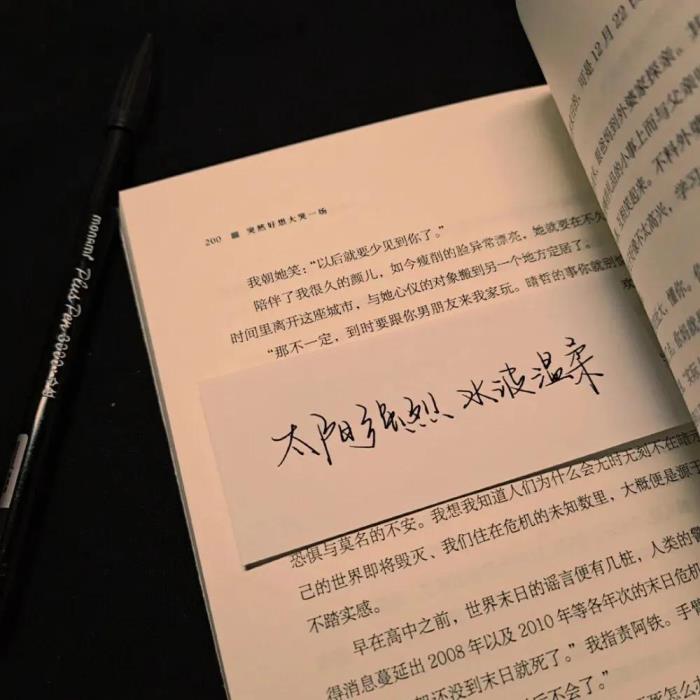 monami Plus Pen 3000
200 ■ 突然好想大哭一场
我朝她笑:“以后就要少见到你了。”
陪伴了我很久的颜儿,如今瘦削的脸异常漂亮,她就要在不久
时间里离开这座城市,与她心仪的对象搬到另一个地方定居了。
“那不一定,到时要跟你男朋友来我家玩。晴哲的事你就别
太阳强烈 水波温柔
我想我知道人们为什么会无时无刻不在暗
恐惧与莫名的不安。
己的世界即将毁灭、我们住在危机的未知数里,大概便是源于
不踏实感。
早在高中之前,世界末日的谣言便有几桩,人类的
得消息蔓延出2008年以及2010年等各年次的末日危机
还没到末日就死了。”我指责阿铁。手臂
不会了。”
可是12月22日
爸妈到外婆家探亲。
的小事上而与父亲
和笑起来。不料外婆
不太高兴,学习
懂你。